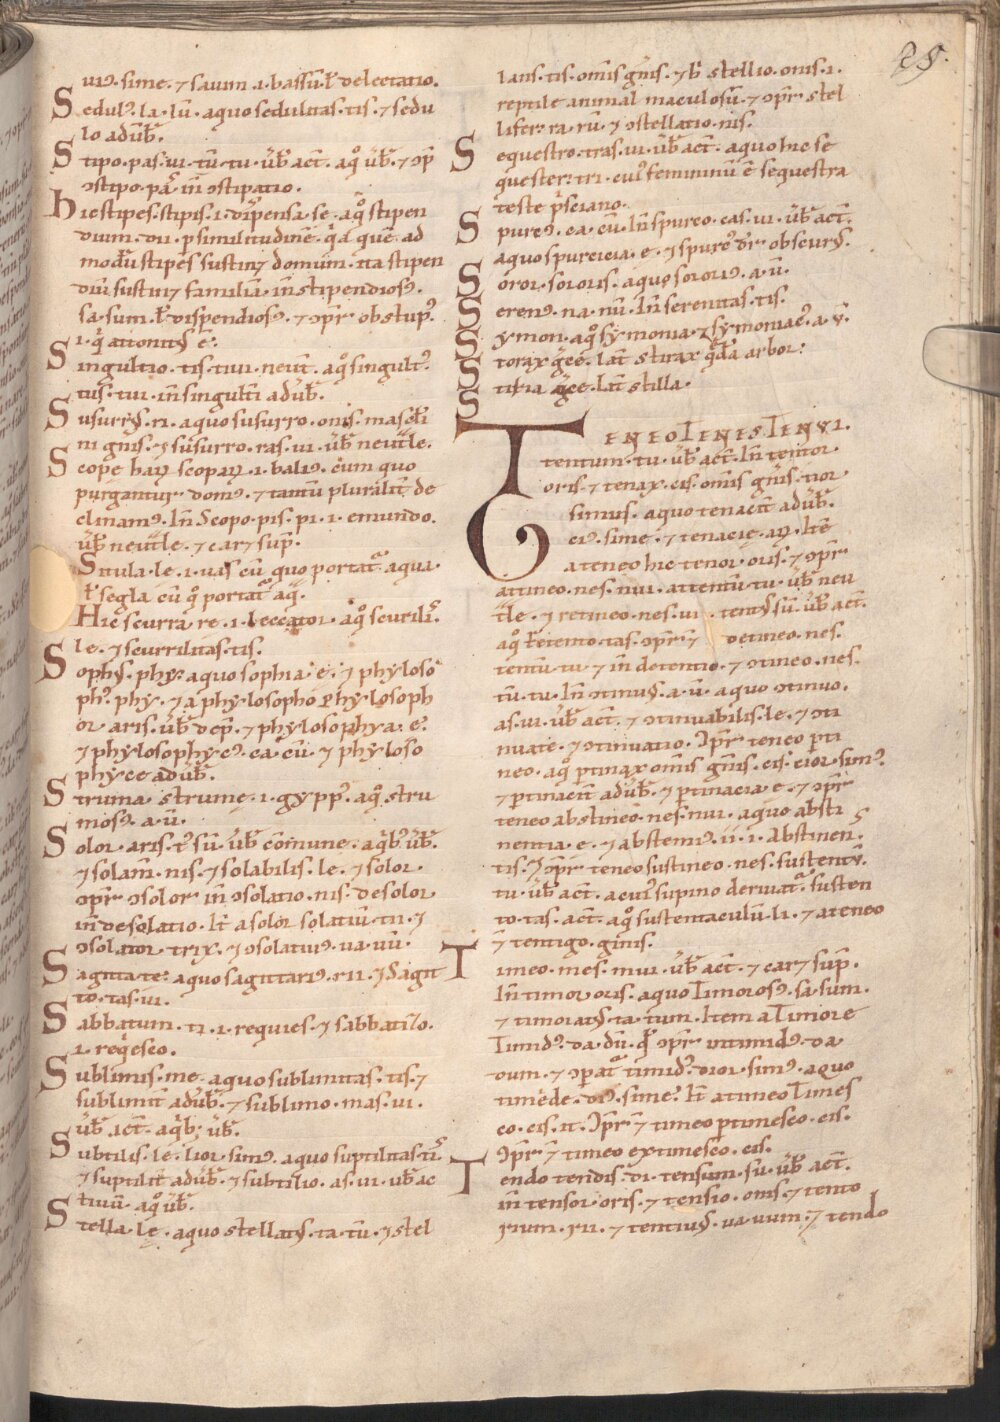 25.
uiꝰ· sime· ⁊ sauıum ·i· bassiū ł delectatio.
Sedulꝰ· la· lū· a quo sedulitas· tis· ⁊ sedu
lo adūb̄.
Stipo· pas· ui· tū· tu· ūb̄ act̄· aq̊ ūb̄· ⁊ ꝯp̄
ꝯstipo· in̄ ꝯstipatio.
Hic stipes· stipis· ·i· aq̊ stipen
dium· dii· p similitudinē· quē ad
modū stipes sustin⁊ domum· ita stipen
diū sustin⁊ familiā· in̄ stipendiosꝰ.
sa· sum· ł dispendiosꝰ· ⁊ ꝯpr̄ obstup.
·i· attonitꝰ ē.
Singultio· tis· tiui· neut̄· aq̊ singultꝰ
tus· tui· in̄ singultī adūb̄.
Susurrꝰ· ri· a quo susurro· onis·
ni gn̄is· ⁊ susurro· ras· ui· ūb̄ neutl̄e.
Scope haꝝ scopaꝝ ·i· cum quo
purgantur domꝰ· ⁊ tantū pluralit̄ de
clinamꝰ· In̄ Scopo· pis· pi· ·i· emundo.
ūb̄ neutl̄e· ⁊ car⁊ sup̄.
Situla· le· ·i· uas cū quo portat̄ aqua·
ł segla cū q̊ portat̄ aq̄.
Hic scurra re· ·i· leccator· aq̊ scurilis
le· ⁊ scurrilitas· tis.
Sophꝰ· phy· a quo sophia· e· ⁊ phyloso
phꝰ· phy· ⁊ a phylosopho phylosoph
or aris· ūb̄ dep̄· ⁊ phylosophya· e.
⁊ phylosophycꝰ· ca· cū· ⁊ phyloso
phyce adūb̄.
Struma strumę· ·i· gyppꝰ· aq̊ stru
mosꝰ· a· ū.
Solor· aris· tꝰ sū· ūb̄ cōmune· ūb̄.
⁊ solam̄· nis· ⁊ solabilis· le· ⁊ solor
ꝯpr̄ ꝯsolor in̄ ꝯsolatio· nis· desolor
in̄ desolatio· It̄ a solor solatiū· tii· ⁊
ꝯsolator· trix· ⁊ ꝯsolatiuꝰ· ua· uū.
Sagitta· te· a quo sagittariꝰ· rii· ⁊ Sagit
to· tas· ui.
Sabbatum· ti· ·i· requies· ⁊ sabbatizo.
·i· reqꝰesco.
Sublimis· me· a quo sublimitas· tis· ⁊
sublimit̄ adūb̄· ⁊ sublimo· mas· ui.
ūb̄ act̄· aqb; ūb̄.
Subtilis· le· lior· simꝰ· a quo suptilitas· ti
⁊ suptilit̄ adūb̄· ⁊ subtilio· as· ui· ūb̄ ac
tiuū· aq̊ ūb̄.
Stella· lę· a quo stellatꝰ· ta· tū· ⁊ stel
lans· tis· om̄is gn̄is· ⁊ stellio· onis· ·i·
reptile animal maculosū· ⁊ ꝯpr̄ stel
lifer· ra· rū· ⁊ ꝯstellatio· nis.
Sequestro· tras· ui· ūb̄ act̄· a quo hic se
quester· tri· cuiꝰ femininū ē sequestra
teste p̄sciano.
Spurcꝰ· ca· cū· In̄ spurco· cas· ui· ūb̄ act̄.
a quo spurcicia· e· ⁊ spurcꝰ dr̄ obscurꝰ.
Soror· sororis· a quo sororiꝰ· a· ū.
Serenꝰ· na· nū· In̄ serenitas· tis.
Symon· aq̊ symonia· ⁊ symoniacꝰ· a· ū.
Storax gc̄e· lat̄ stirax arbor.
Stiria gc̄e· lat̄ stilla.
TENEO TENES TENVI.
tentum· tu· ūb̄ act̄· In̄ tentor
oris· ⁊ tenax· cis· om̄is gn̄is· cior
simus· a quo tenacit̄ adūb̄.
ciꝰ· sime· ⁊ tenacię· aꝝ· Itē
a teneo hic tenor· oris· ⁊ ꝯpr̄
attineo· nes· nui· attentū· tu· ūb̄ neu
tl̄e· ⁊ retineo· nes· ui· tentꝰ sū· ūb̄ act̄.
aq̊ retento· tas· ꝯpr̄ ⁊ detineo· nes.
tentū· tu· ⁊ in̄ detentio· ⁊ ꝯtineo· nes.
tū· tu· In̄ ꝯtinuꝰ· a· ū· a quo ꝯtinuo.
as· ui· ūb̄ act̄· ⁊ ꝯtinuabilis· le· ⁊ ꝯti
nuate· ⁊ ꝯtinuatio· ꝯpr̄ teneo pti
neo· aq̊ ꝑtinax om̄is gn̄is· cis· cior· simꝰ.
⁊ ꝑtinacit̄ adūb̄· ⁊ ꝑtinacia· e· ⁊ ꝯpr̄
teneo abstineo· nes· nui· a quo absti
nentia· e· ⁊ abstemiꝰ· ii· ·i· abstinens
tis· ⁊ ꝯpr̄ teneo sustineo· nes· sustentū.
tu· ūb̄ act̄· a cuiꝰ supino deriuat̄ susten
to· tas· act̄· aq̊ sustentaculū· li· ⁊ a teneo
⁊ tentigo· ginis.
Timeo· mes· mui· ūb̄ act̄· ⁊ car⁊ sup̄.
In̄ timor oris· a quo Timorosꝰ· sa· sum.
⁊ timoratꝰ· ta· tum· Item a Timore
Timidꝰ· da· dū· ꝯpr̄ intimidꝰ· da
dum· ⁊ timidꝰ· dior· simꝰ· a quo
timide· diꝰ· sime· It̄ a timeo Times
co· cis· it· ꝯpr̄ ⁊ timeo ptimesco· cis.
ꝯpr̄ ⁊ timeo extimesco· cis.
Tendo tendis· di· tensum· su· ūb̄ act̄.
in̄ tensor· oris· ⁊ tensio· onis· ⁊ tento
rium· rii· ⁊ tentiuꝰ· ua· uum· ⁊ tendo